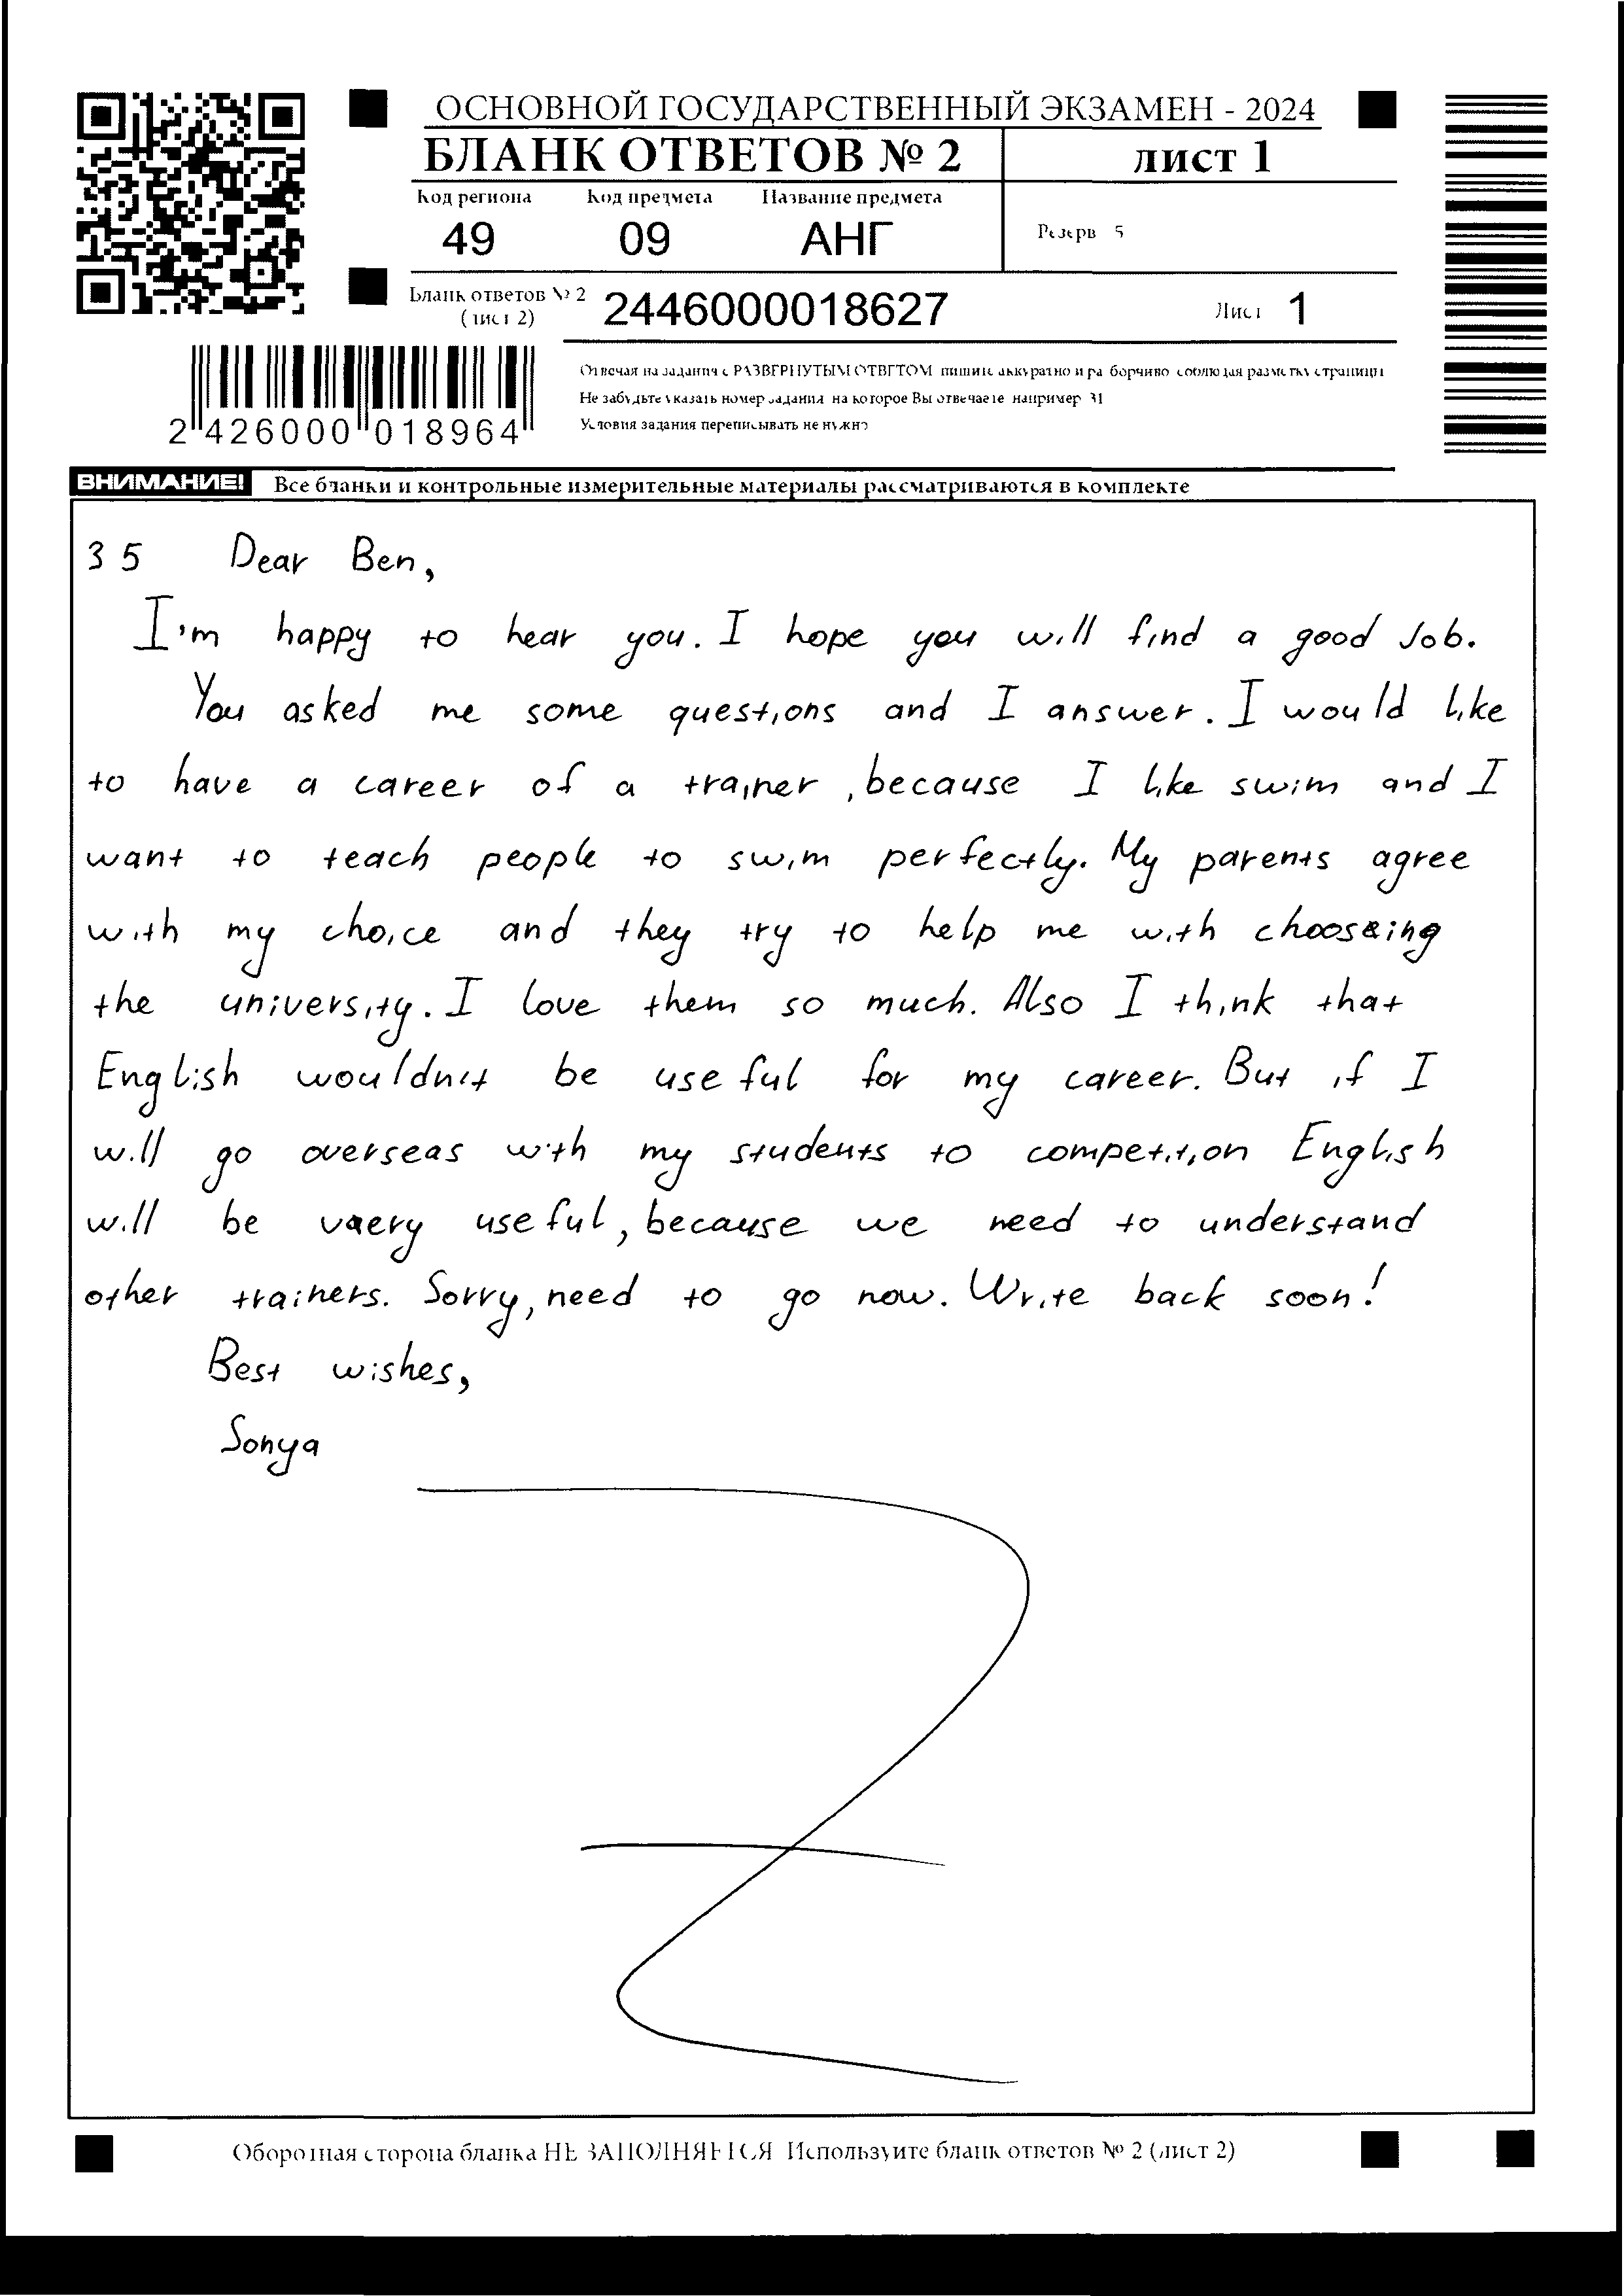 ОСНОВНОЙ ГОСУДАРСТВЕННЫЙ ЭКЗАМЕН - 2024
БЛАНК ОТВЕТОВ № 2 лист 1
Код региона Код предмета Название предмета
49 09 АНГ
Резерв 5
Бланк ответов № 2 (лист 2) 2446000018627 Лист 1
2 426000 018964
Отвечая на задания с РАЗВЕРНУТЫМ ОТВЕТОМ пишите аккуратно и разборчиво соблюдая разметку страницы
Не забудьте указать номер задания на которое Вы отвечаете например 31
Условия задания переписывать не нужно
ВНИМАНИЕ! Все бланки и контрольные измерительные материалы рассматриваются в комплекте
35 Dear Ben,
I'm happy to hear you. I hope you will find a good Job.
You asked me some questions and I answer. I would like
to have a career of a trainer, because I like swim and I
want to teach people to swim perfectly. My parents agree
with my choice and they try to help me with choosing
the university. I love them so much. Also I think that
English wouldn't be useful for my career. But if I
will go overseas with my students to competition English
will be very useful, because we need to understand
other trainers. Sorry, need to go now. Write back soon!
Best wishes,
Sonya
Оборотная сторона бланка НЕ ЗАПОЛНЯЕТСЯ Используйте бланк ответов № 2 (лист 2)